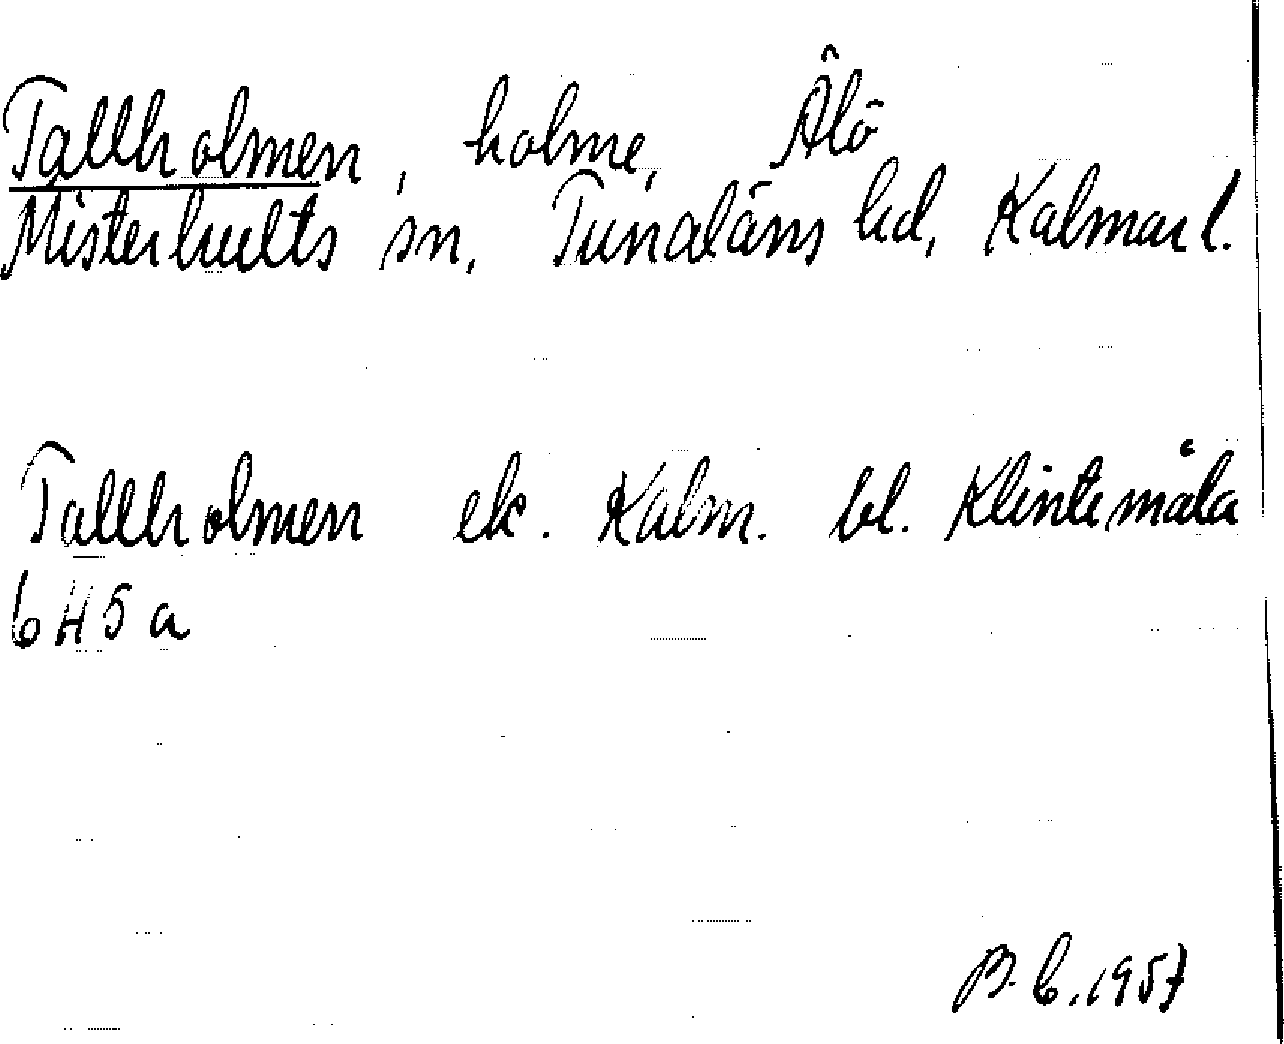 Tallholmen, holme, Ålö
Misterhults sn, Tunaläns hd, Kalmar l.
Tallholmen ek. Kalm. bl. Klintemåla
6H5a
B.C. 1957